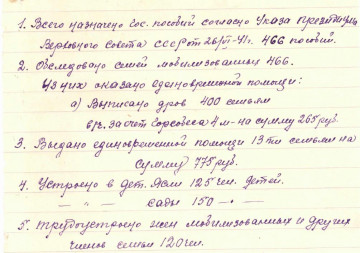 1. Всего назначено гос. пособий согласно Указа президиума
Верховного Совета СССР от 26/VI-41г. 466 пособий.
2. Обследовано семей мобилизованных 466.
Из них оказано единовременной помощи:
а) Выписано дров 400 семьям
в т.ч. за счет Горсовета 4 м- на сумму 265 руб.
3. Выдано единовременной помощи 13ти семьям на
сумму 775 руб.
4. Устроено в дет. ясли 125 чел. детей.
— " — " — сады 150 — " —
5. Трудоустроено жен мобилизованных и других
членов семьи 120 чел.